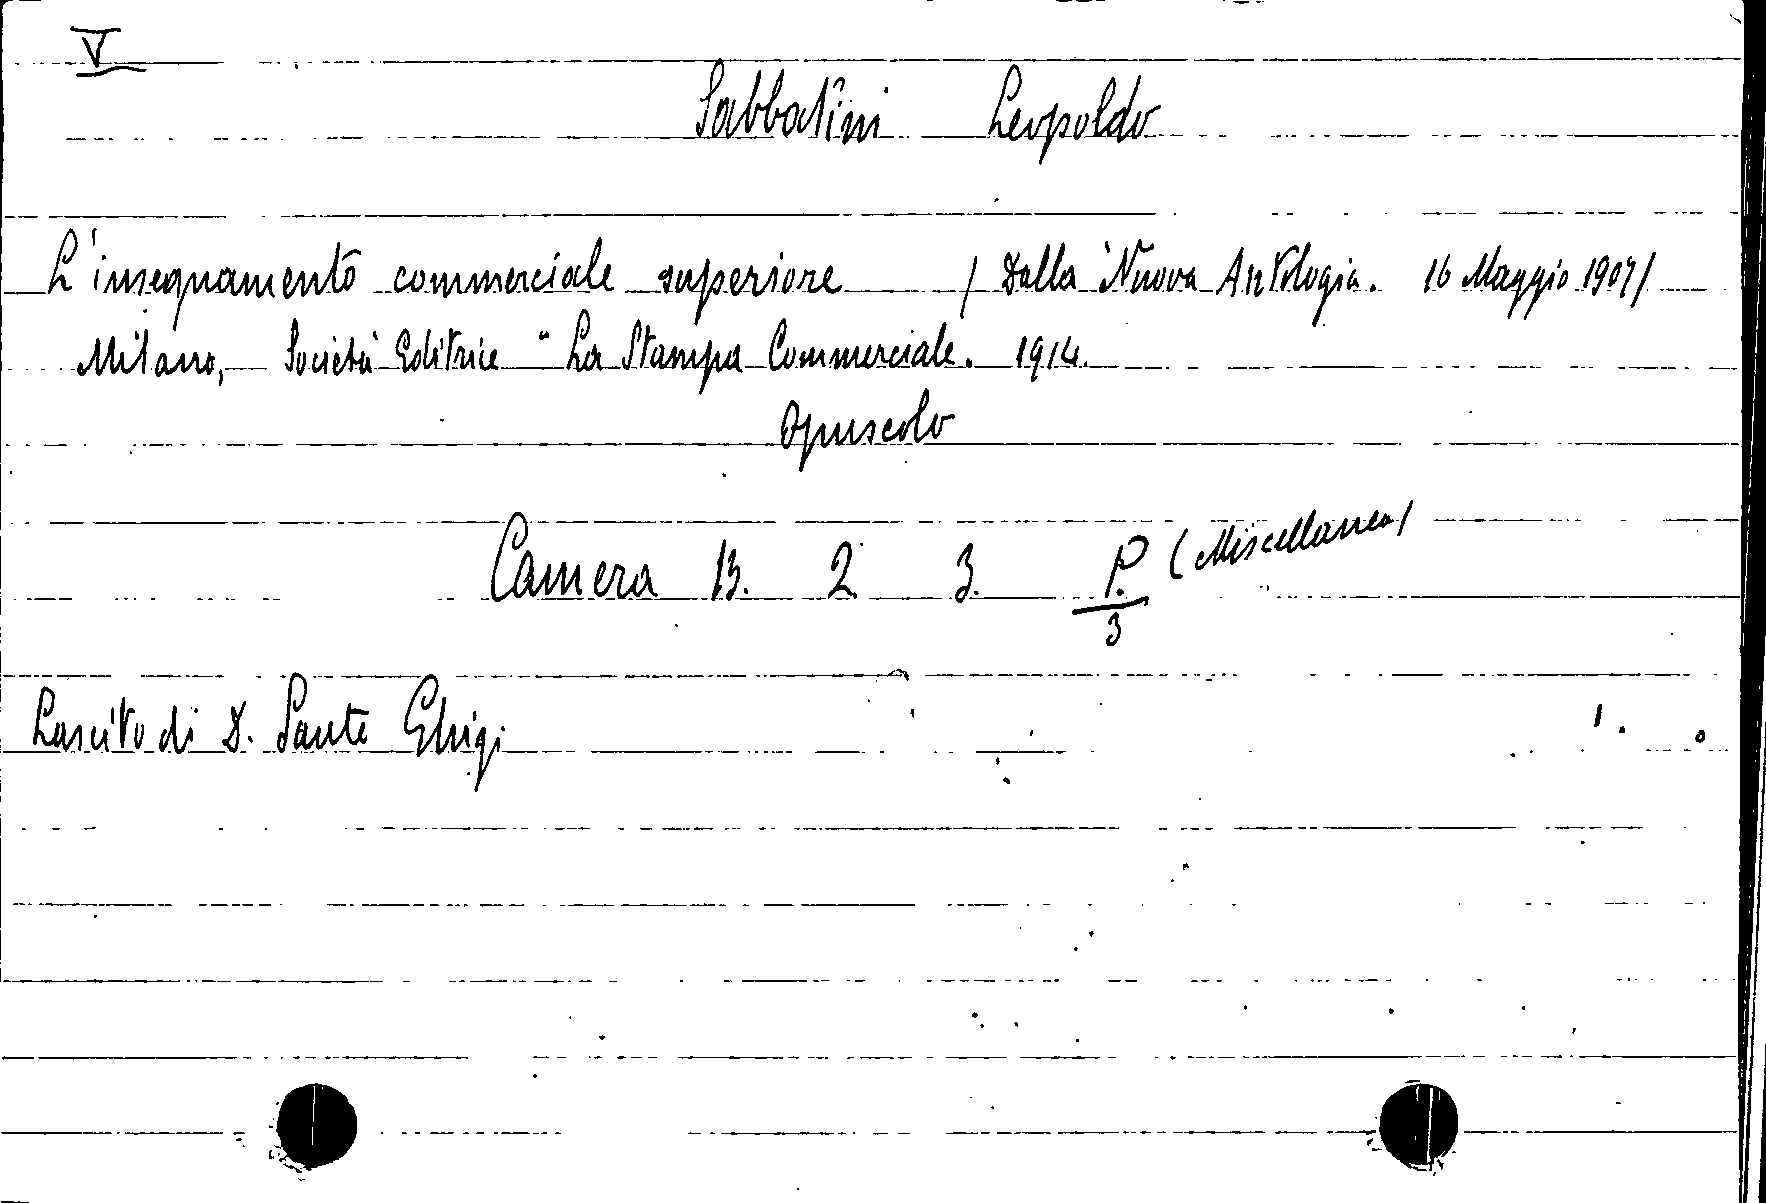 V
Sabbatini Leopoldo
L'insegnamento commerciale superiore / Dalla Nuova Antologia. 16 Maggio 1907/
Milano, Società Editrice " La Stampa Commerciale. 1914.
Opuscolo
Camera B. 2 3. P. (Miscellanea)
3
Lascito di D. Sante Ghigi